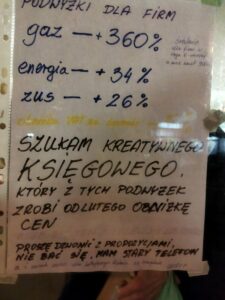 PODWYŻKI DLA FIRM
gaz — +360%
energia — + 34%
zus — + 26%
SZUKAM KREATYWNEGO
KSIĘGOWEGO,
KTÓRY Z TYCH PODWYŻEK
ZROBI OD LUTEGO OBNIŻKĘ
CEN
PROSZĘ DZWONIĆ Z PROPOZYCJAMI,
NIE BAĆ SIĘ, MAM STARY TELEFON